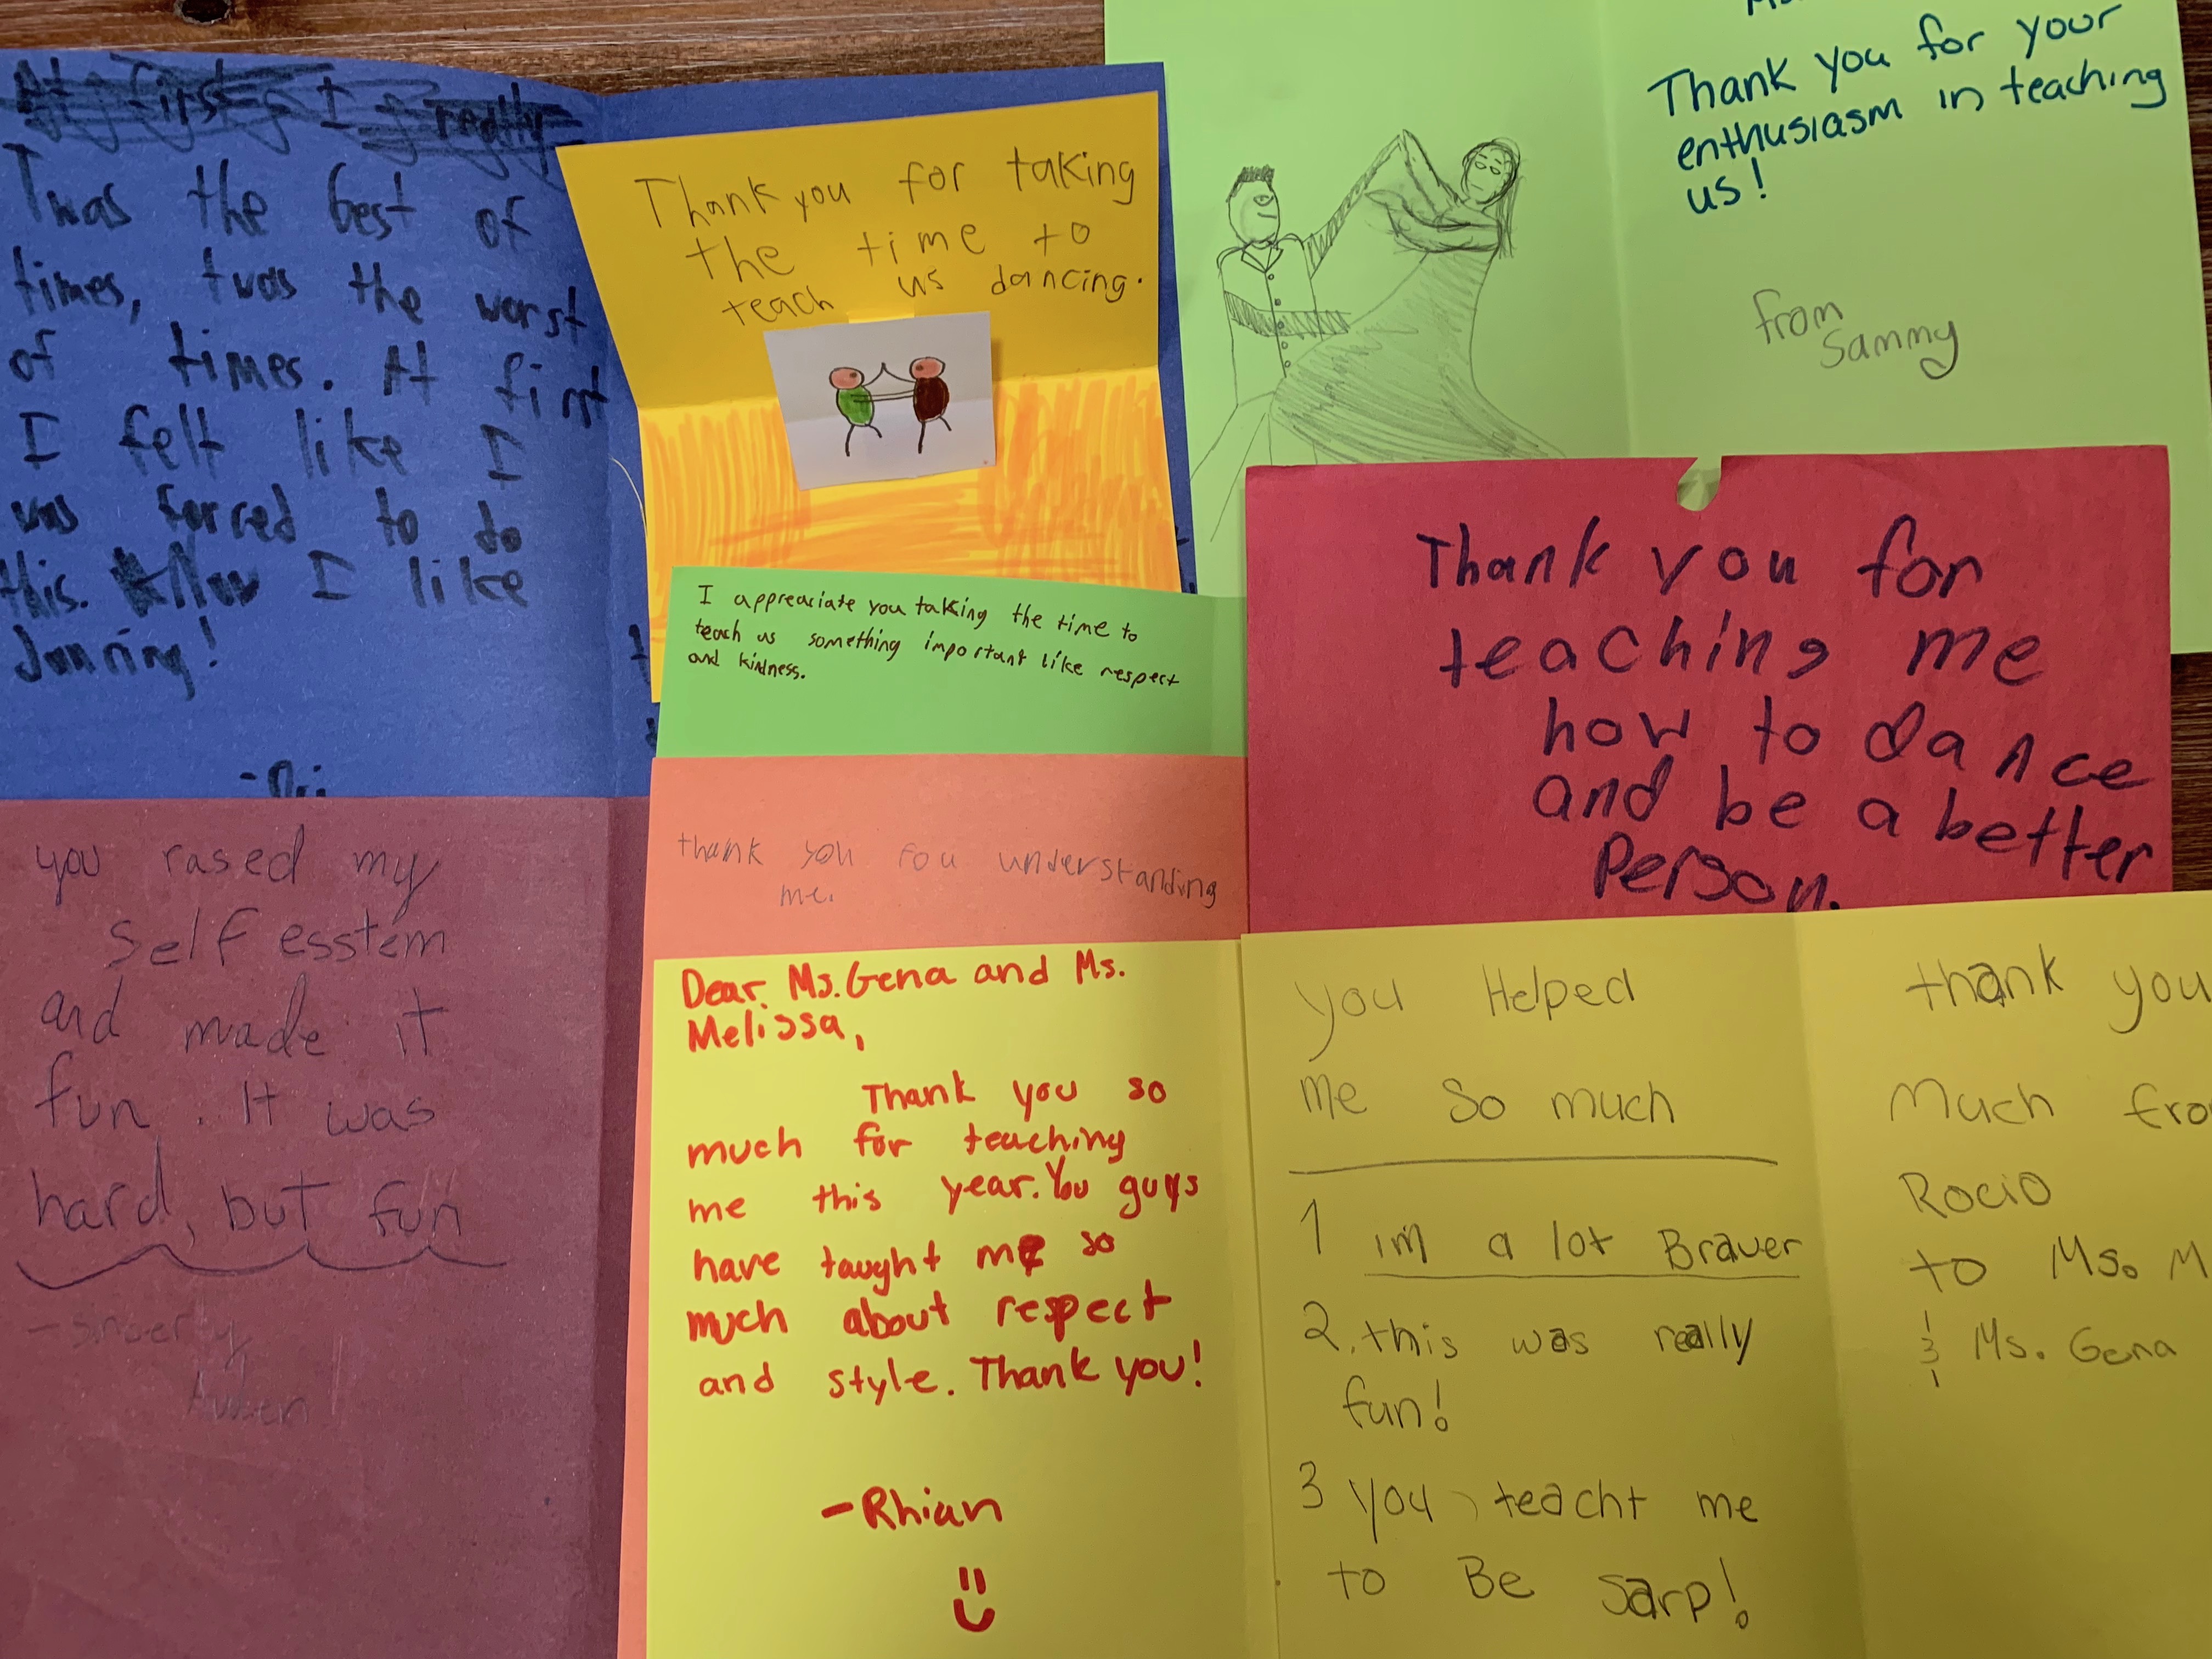 At first I really
Twas the best of
times, twas the worst
of times. At first
I felt like I
was forced to do
this. Now I like
dancing!
Thank you for taking
the time to
teach us dancing.
Thank you for your
enthusiasm in teaching
us!
from
Sammy
I appreaciate you taking the time to
teach us something important like respect
and kindness.
Thank you for
teaching me
how to dance
and be a better
Person.
you rased my
self esstem
and made it
fun. It was
hard, but fun
thank you fou understanding
me.
Dear Ms. Gena and Ms.
Melissa,
Thank you so
much for teaching
me this year. You guys
have taught me so
much about respect
and style. Thank you!
-Rhian
you Helped
me so much
1 im a lot Braver
2. this was really
fun!
3 you teacht me
to Be sarp!
thank you
Much fro
Rocio
to Ms. M
& Ms. Gena